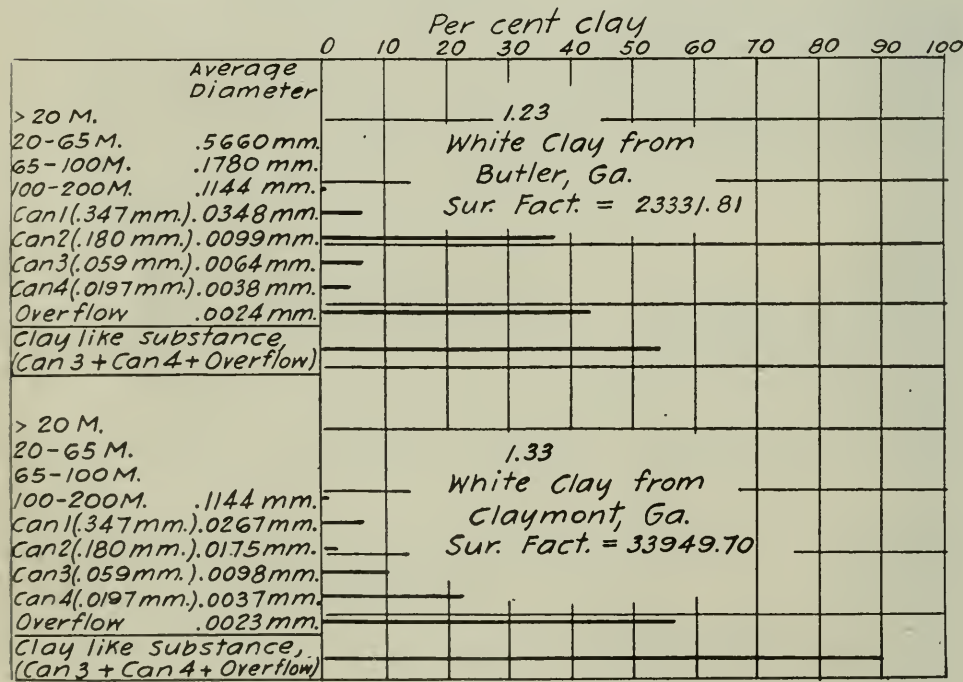 Per cent clay
0 10 20 30 40 50 60 70 80 90 100
Average
Diameter
> 20 M.
20-65 M. .5660 mm.
65-100 M. .1780 mm.
100-200 M. .1144 mm.
Can 1 (.347 mm.) .0348 mm.
Can 2 (.180 mm.) .0099 mm.
Can 3 (.059 mm.) .0064 mm.
Can 4 (.0197 mm.) .0038 mm.
Overflow .0024 mm.
Clay like substance,
(Can 3 + Can 4 + Overflow)
1.23
White Clay from
Butler, Ga.
Sur. Fact. = 23331.81
> 20 M.
20-65 M.
65-100 M.
100-200 M. .1144 mm.
Can 1 (.347 mm.) .0267 mm.
Can 2 (.180 mm.) .0175 mm.
Can 3 (.059 mm.) .0098 mm.
Can 4 (.0197 mm.) .0037 mm.
Overflow .0023 mm.
Clay like substance,
(Can 3 + Can 4 + Overflow)
1.33
White Clay from
Claymont, Ga.
Sur. Fact. = 33949.70